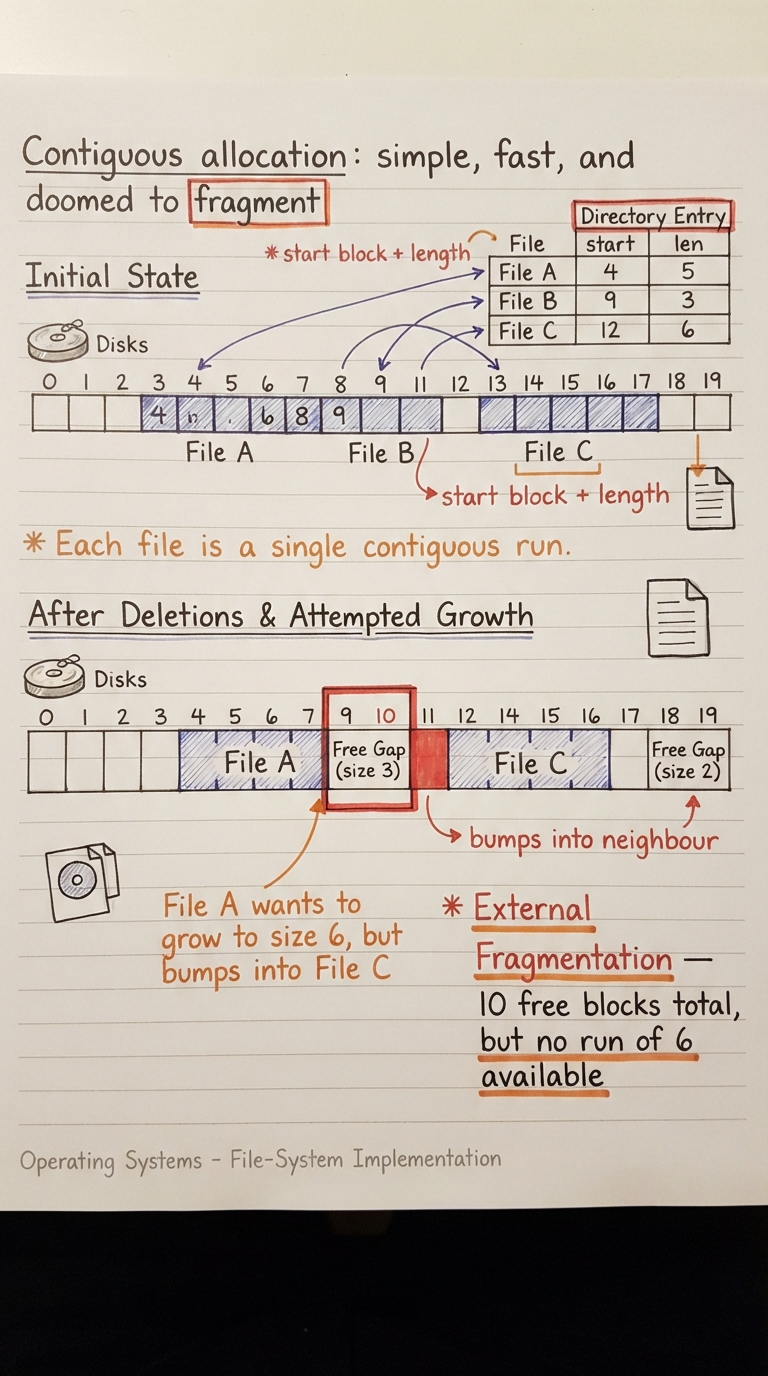 Contiguous allocation: simple, fast, and
doomed to fragment
Directory Entry
* start block + length
File start len
File A 4 5
File B 9 3
File C 12 6
Initial State
Disks
0 1 2 3 4 5 6 7 8 9 11 12 13 14 15 16 17 18 19
4 . 6 8 9
File A File B File C
start block + length
* Each file is a single contiguous run.
After Deletions & Attempted Growth
Disks
0 1 2 3 4 5 6 7 9 10 11 12 14 15 16 17 18 19
File A
Free Gap
(size 3)
File C
Free Gap
(size 2)
bumps into neighbour
File A wants to
grow to size 6, but
bumps into File C
* External
Fragmentation —
10 free blocks total,
but no run of 6
available
Operating Systems - File-System Implementation